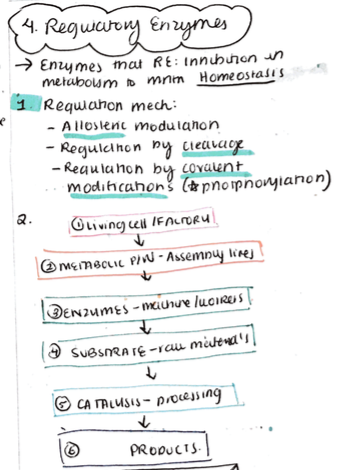 4. Regulatory Enzymes
→ Enzymes that RE: Inhibition in
metabolism to mntn Homeostasis
1. Regulation mech:
- Allosteric modulation
- Regulation by cleavage
- Regulation by covalent
modifications (*phosphorylation)
2.
① Living cell / FACTORY
② METABOLIC P/W - Assembly lines
③ ENZYMES - machine /
④ SUBSTRATE - raw materials
⑤ CATALYSIS - processing
⑥ PRODUCTS.